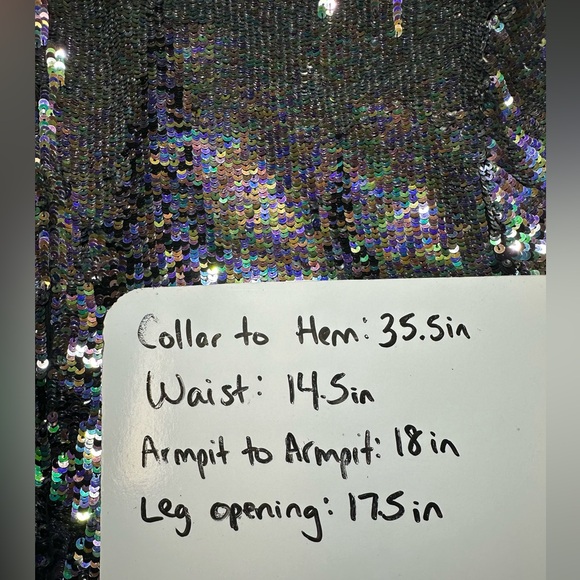 Collar to Hem: 35.5in
Waist: 14.5in
Armpit to Armpit: 18in
Leg opening: 17.5in